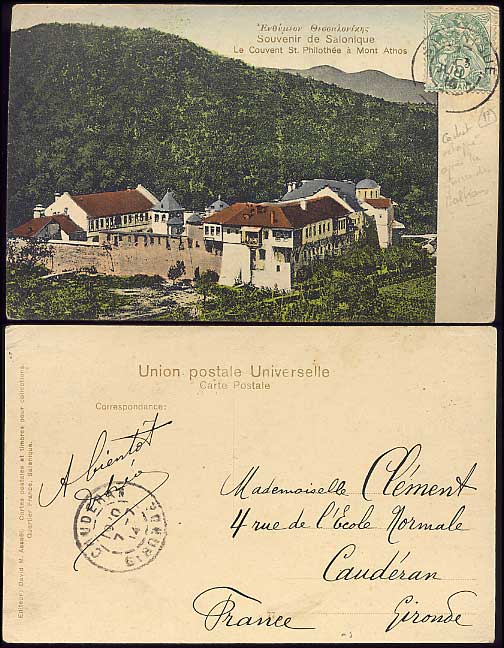 Ἐνθύμιον Θεσσαλονίκης
Souvenir de Salonique
Le Couvent St. Philothée à Mont Athos
Union postale Universelle
Carte Postale
Correspondance:
A bientôt
CAUDERAN
7-7
14
GIRONDE
Mademoiselle Clément
4 rue de l'École Normale
Caudéran
France Gironde
Editeur: David M. Assaël. Cartes postales et timbres pour collections.
Quartier France, Salonique.